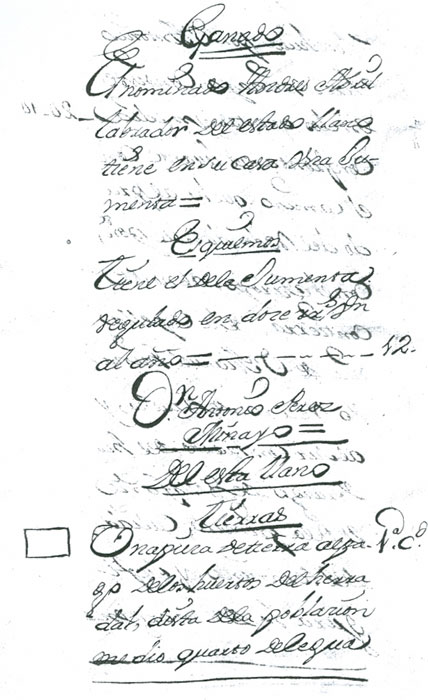 Ganado
El nominado Andres Abril
labrador del estado llano
tiene en su casa Una Ju-
menta =
Esquilmos
Tiene el dela Jumenta
regulado en doce rs. vn
al año = 12.
Dn Antonio Perez
Minayo =
Del esta llano
Tierras
Una pieza de tierra al pa- 1ª. Cd
go delos huertos del herra
dal, dista dela poblacion
medio quarto de legua